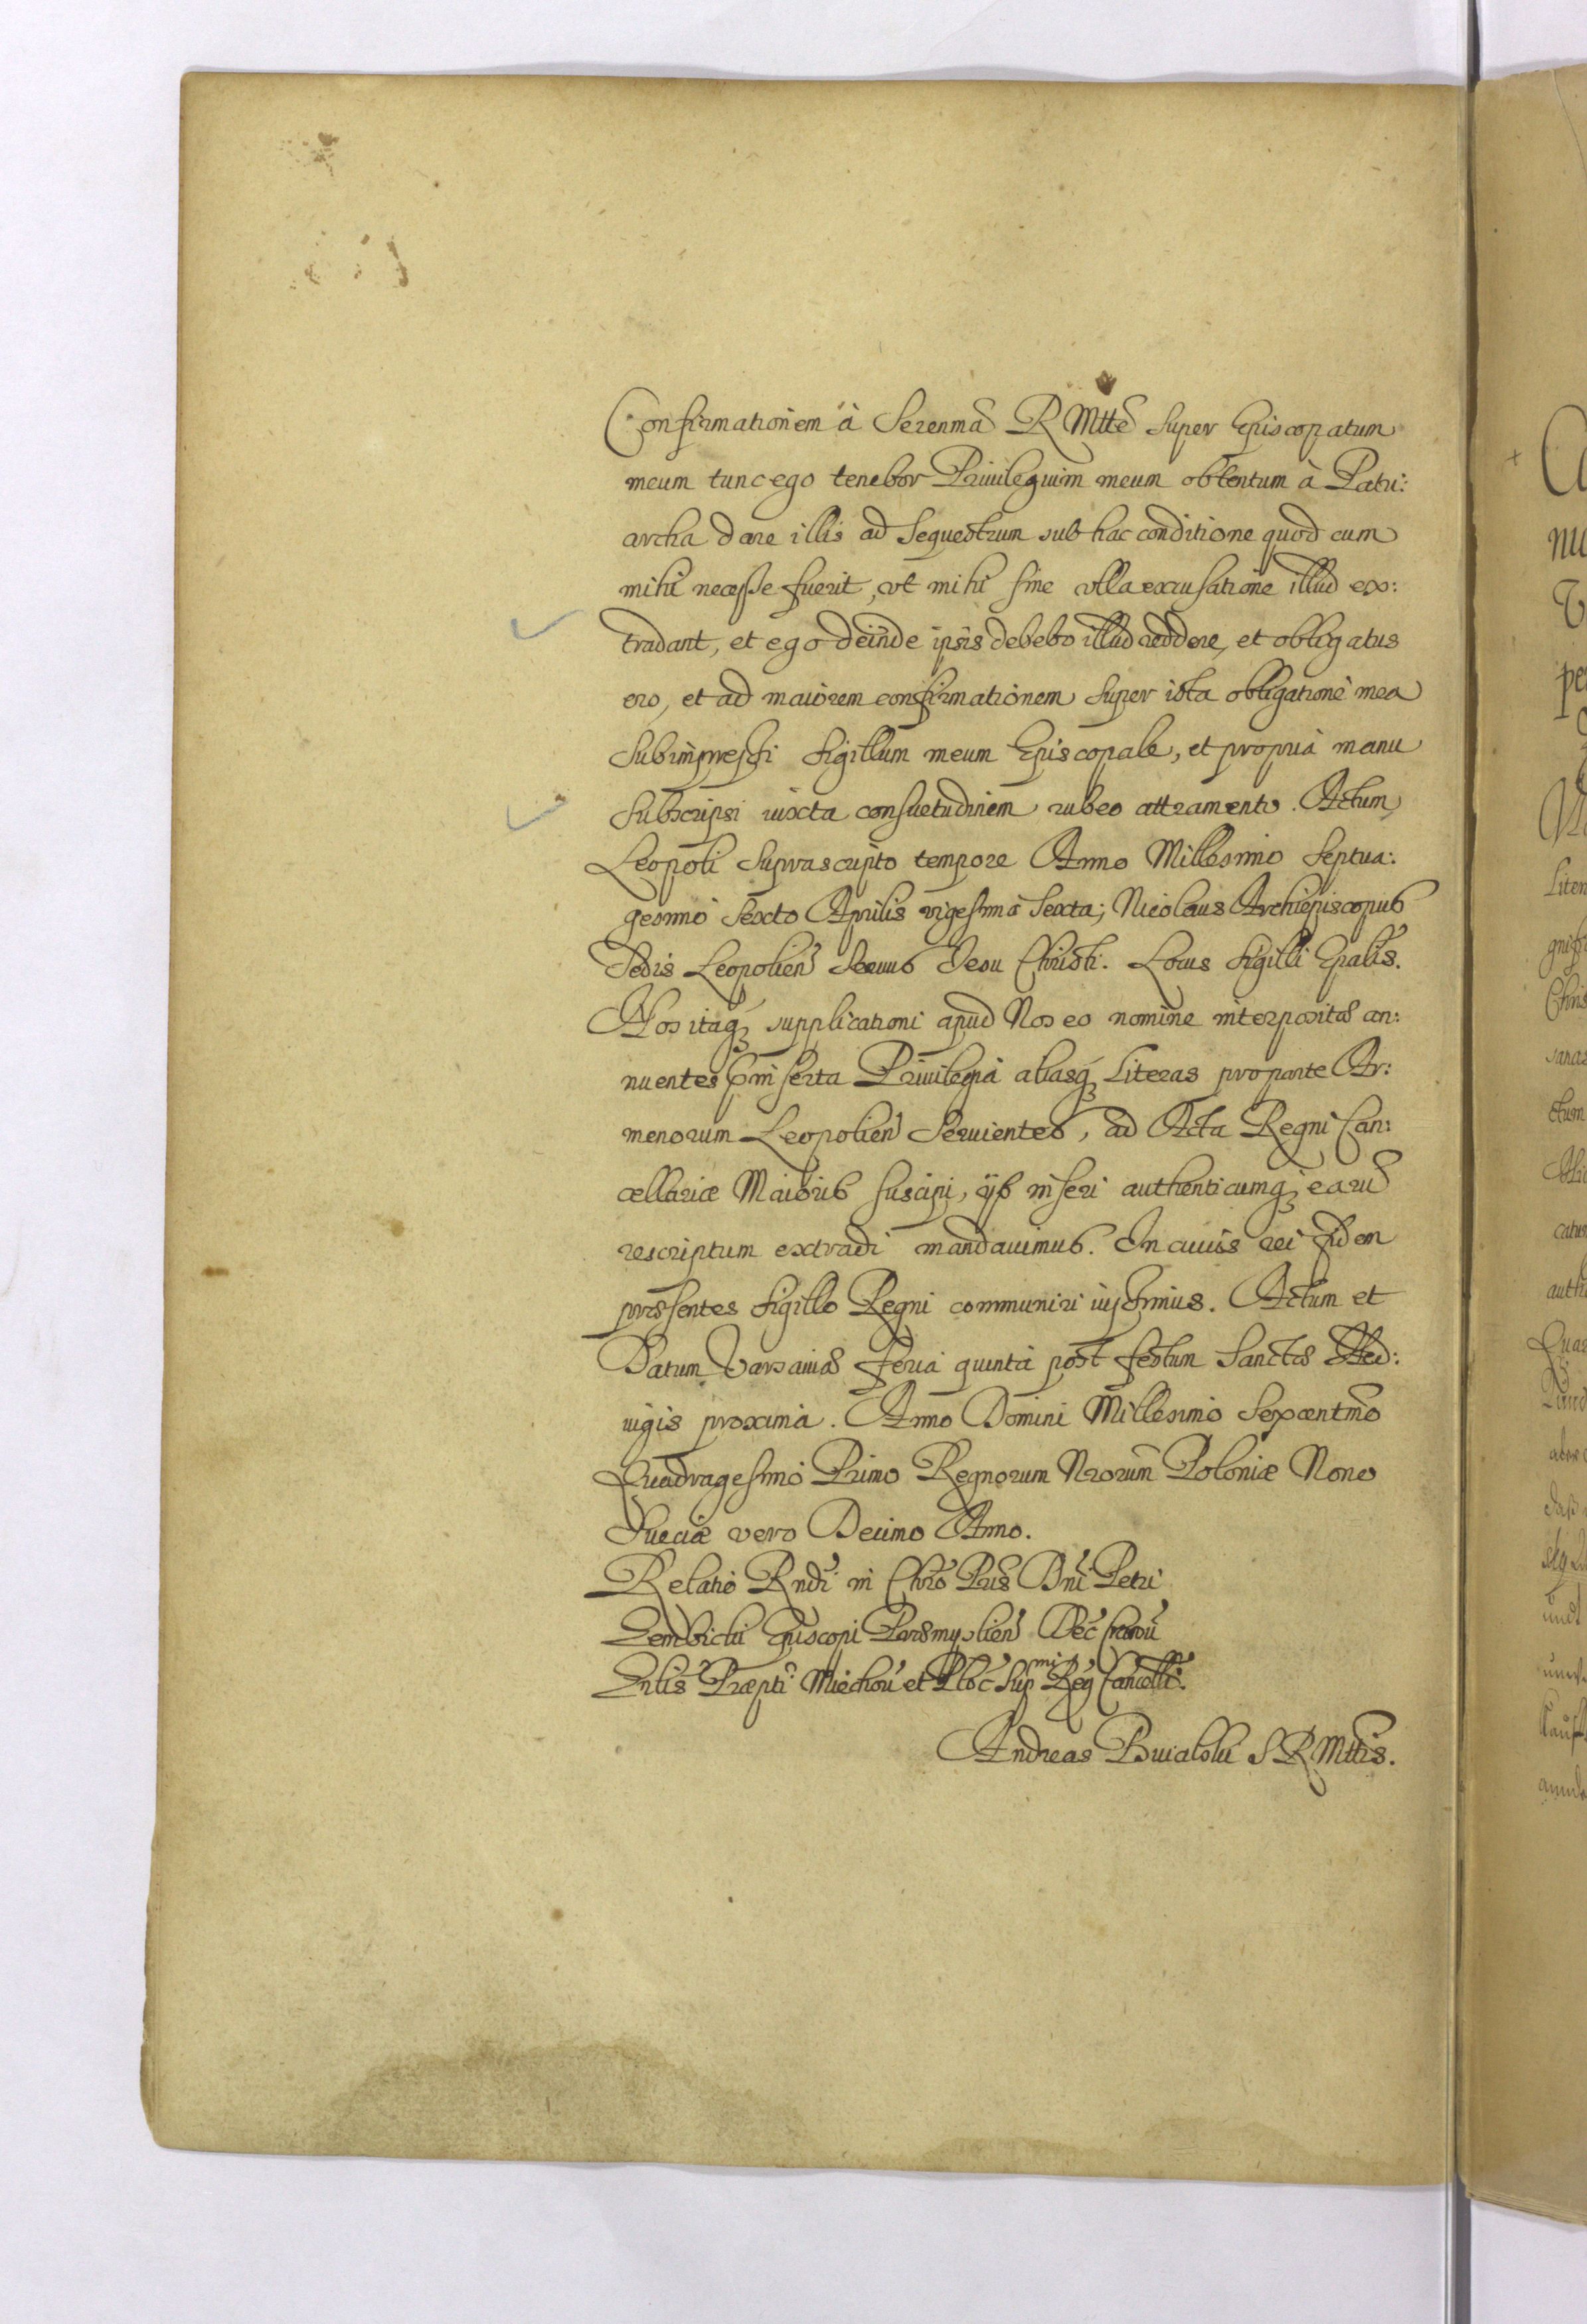 Confirmationem à Serenma R Mtte super Episcopatum
meum tunc ego tenebor Priuilegium meum obtentum à Patri:
archa dare illis ad sequestrum sub hac conditione quod cum
mihi necesse fuerit, vt mihi sine vlla excusatione illud ex:
tradant, et ego deinde ipsis debebo illud reddere, et obligatus
ero, et ad maiorem confirmationem super ista obligatione mea
subimpressi sigillum meum Episcopale, et propria manu
subscripsi iuxta consuetudinem rubeo attramento. Actum
Leopoli suprascripto tempore Anno Millesimo septua:
gesimo sexto Aprilis vigesima sexta; Nicolaus Archiepiscopus
Sedis Leopolien seruus Jesu Christi. Locus sigilli Epalis.
Nos itaq supplicationi apud Nos eo nomine interpositæ an:
nuentes inserta Priuilegia aliasq Literas pro parte Ar:
menorum Leopolien seruientes, ad Acta Regni Can:
cellariæ Maioris suscipi, ijs inseri authenticumq earu
rescriptum extradi mandauimus. In cuius rei fidem
præsentes sigillo Regni communiri iussimus. Actum et
Datum Varsauiæ feria quinta post festum Sanctæ Hed:
uigis proxima. Anno Domini Millesimo Sexcentmo
Quadragesimo Primo Regnorum Nrorum Poloniæ Nono
Sueciæ vero Decimo Anno.
Relatio Rndi in Chro Pris Dni Petri
Gembicki Episcopi Præmyslien Dec
Gnlis Præpti Miechou et Ploc Sup mi Reg Cancell.
Andreas S R Mttis.